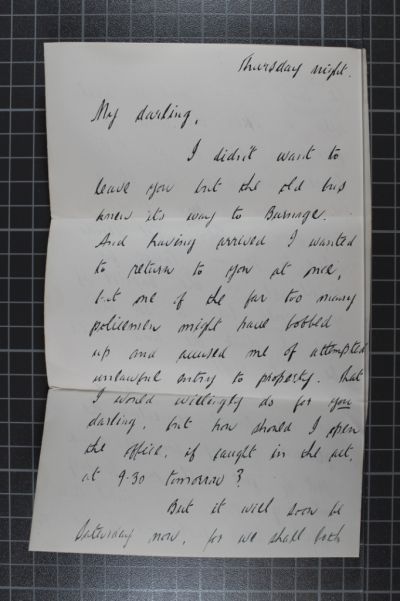 Thursday night.
My darling,
I didn't want to
leave you but the old bus
knew its way to Burnage.
And having arrived I wanted
to return to you at once,
but one of the far too many
policemen might have bobbed
up and accused me of attempted
unlawful entry to property. That
I would willingly do for you
darling, but how should I open
the office, if caught in the act,
at 9.30 tomorrow?
But it will soon be
Saturday now, for we shall both